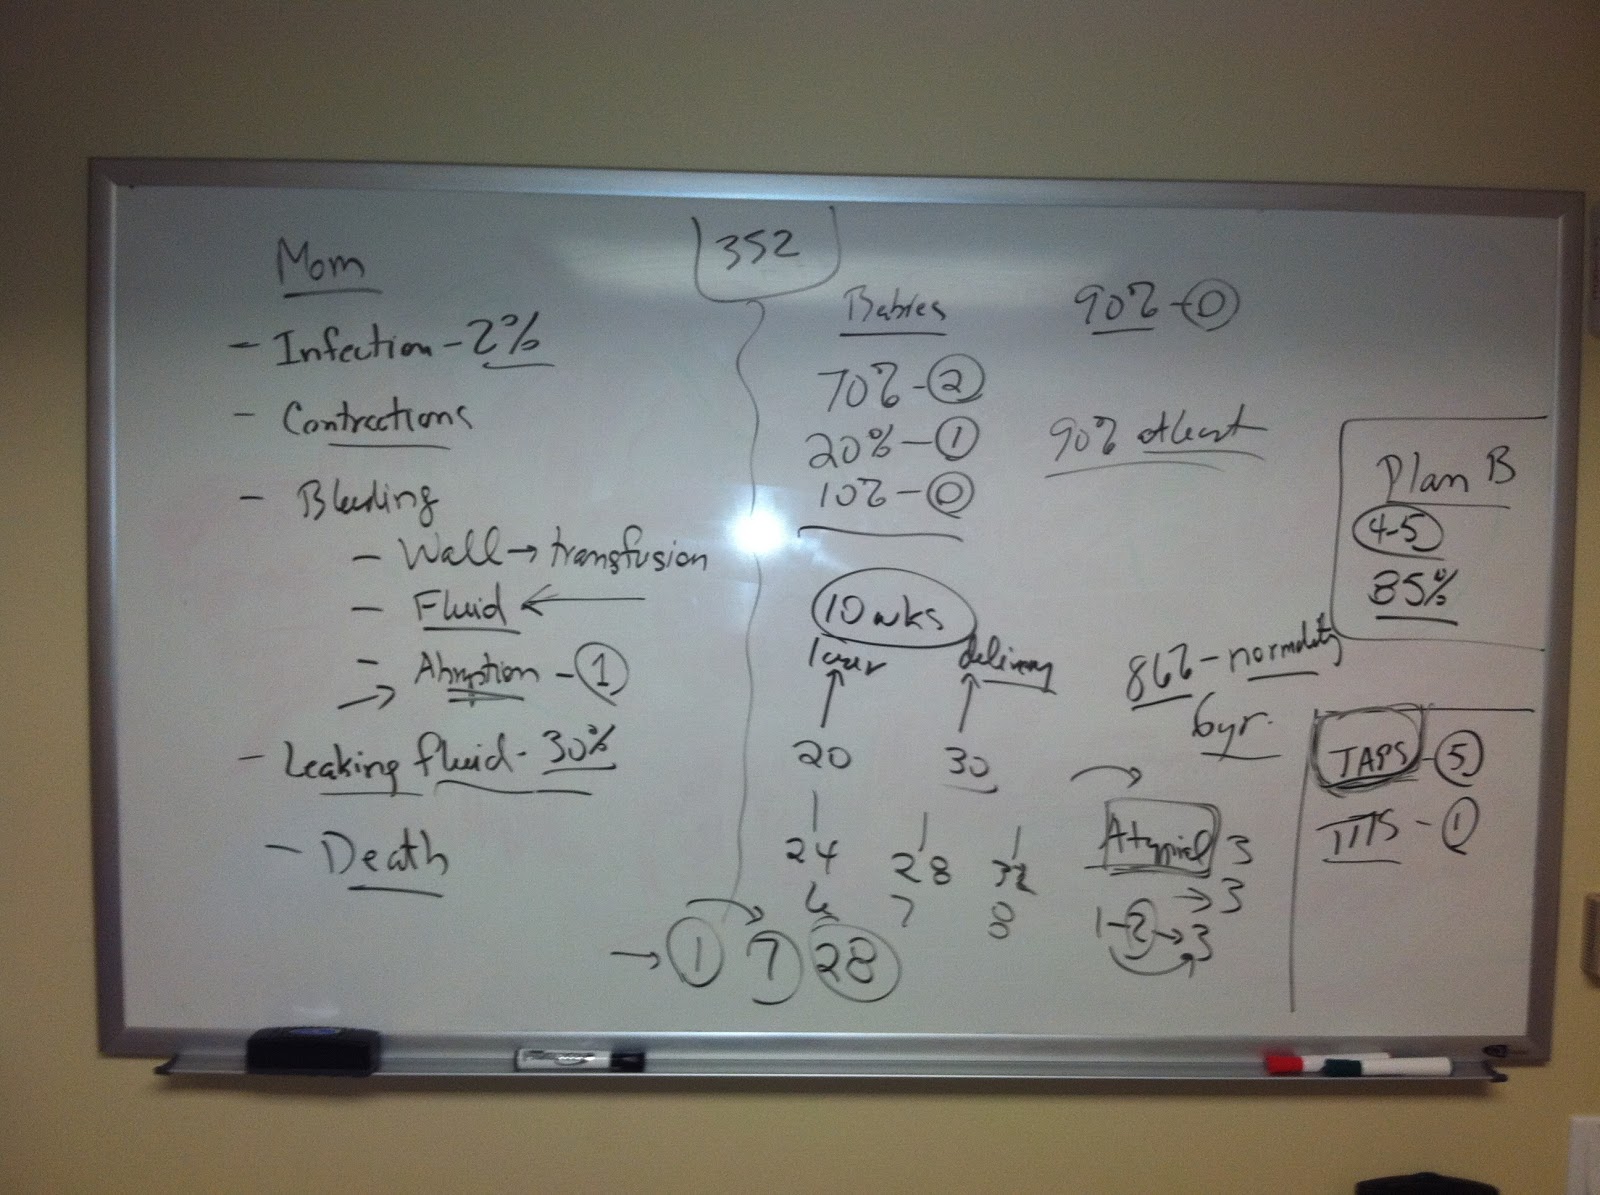 352
Mom
- Infection - 2%
- Contractions
- Bleeding
- Wall → transfusion
- Fluid ←
→ - Abruption - 1
- Leaking fluid - 30%
- Death
Babies
70% - 2
20% - 1
10% - 0
90% - 0
90% at least
10 wks
laser delivery
20 30
24 28 32
6 7 8
→ 1 7 28
86% - normality
6yr.
Atypical 3
→ 3
1-2 → 3
Plan B
4-5
85%
TAPS - 5
TTTS - 1